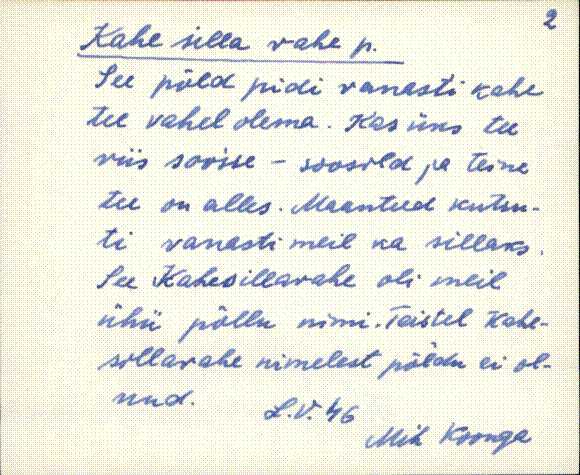 2
Kahe silla vahe p.
See põld pidi vanasti kahe
tee vahel olema. Kas üks tee
viis soosse - soosild ja teine
tee on alles. Maanteed kutsu-
ti vanasti meil ka sillaks.
See Kahesillavahe oli meil
ühü põllu nimi. Teistel Kahe-
sillavahe nimelest põldu ei ol-
nud.
L.V. 46
Mih Koonga